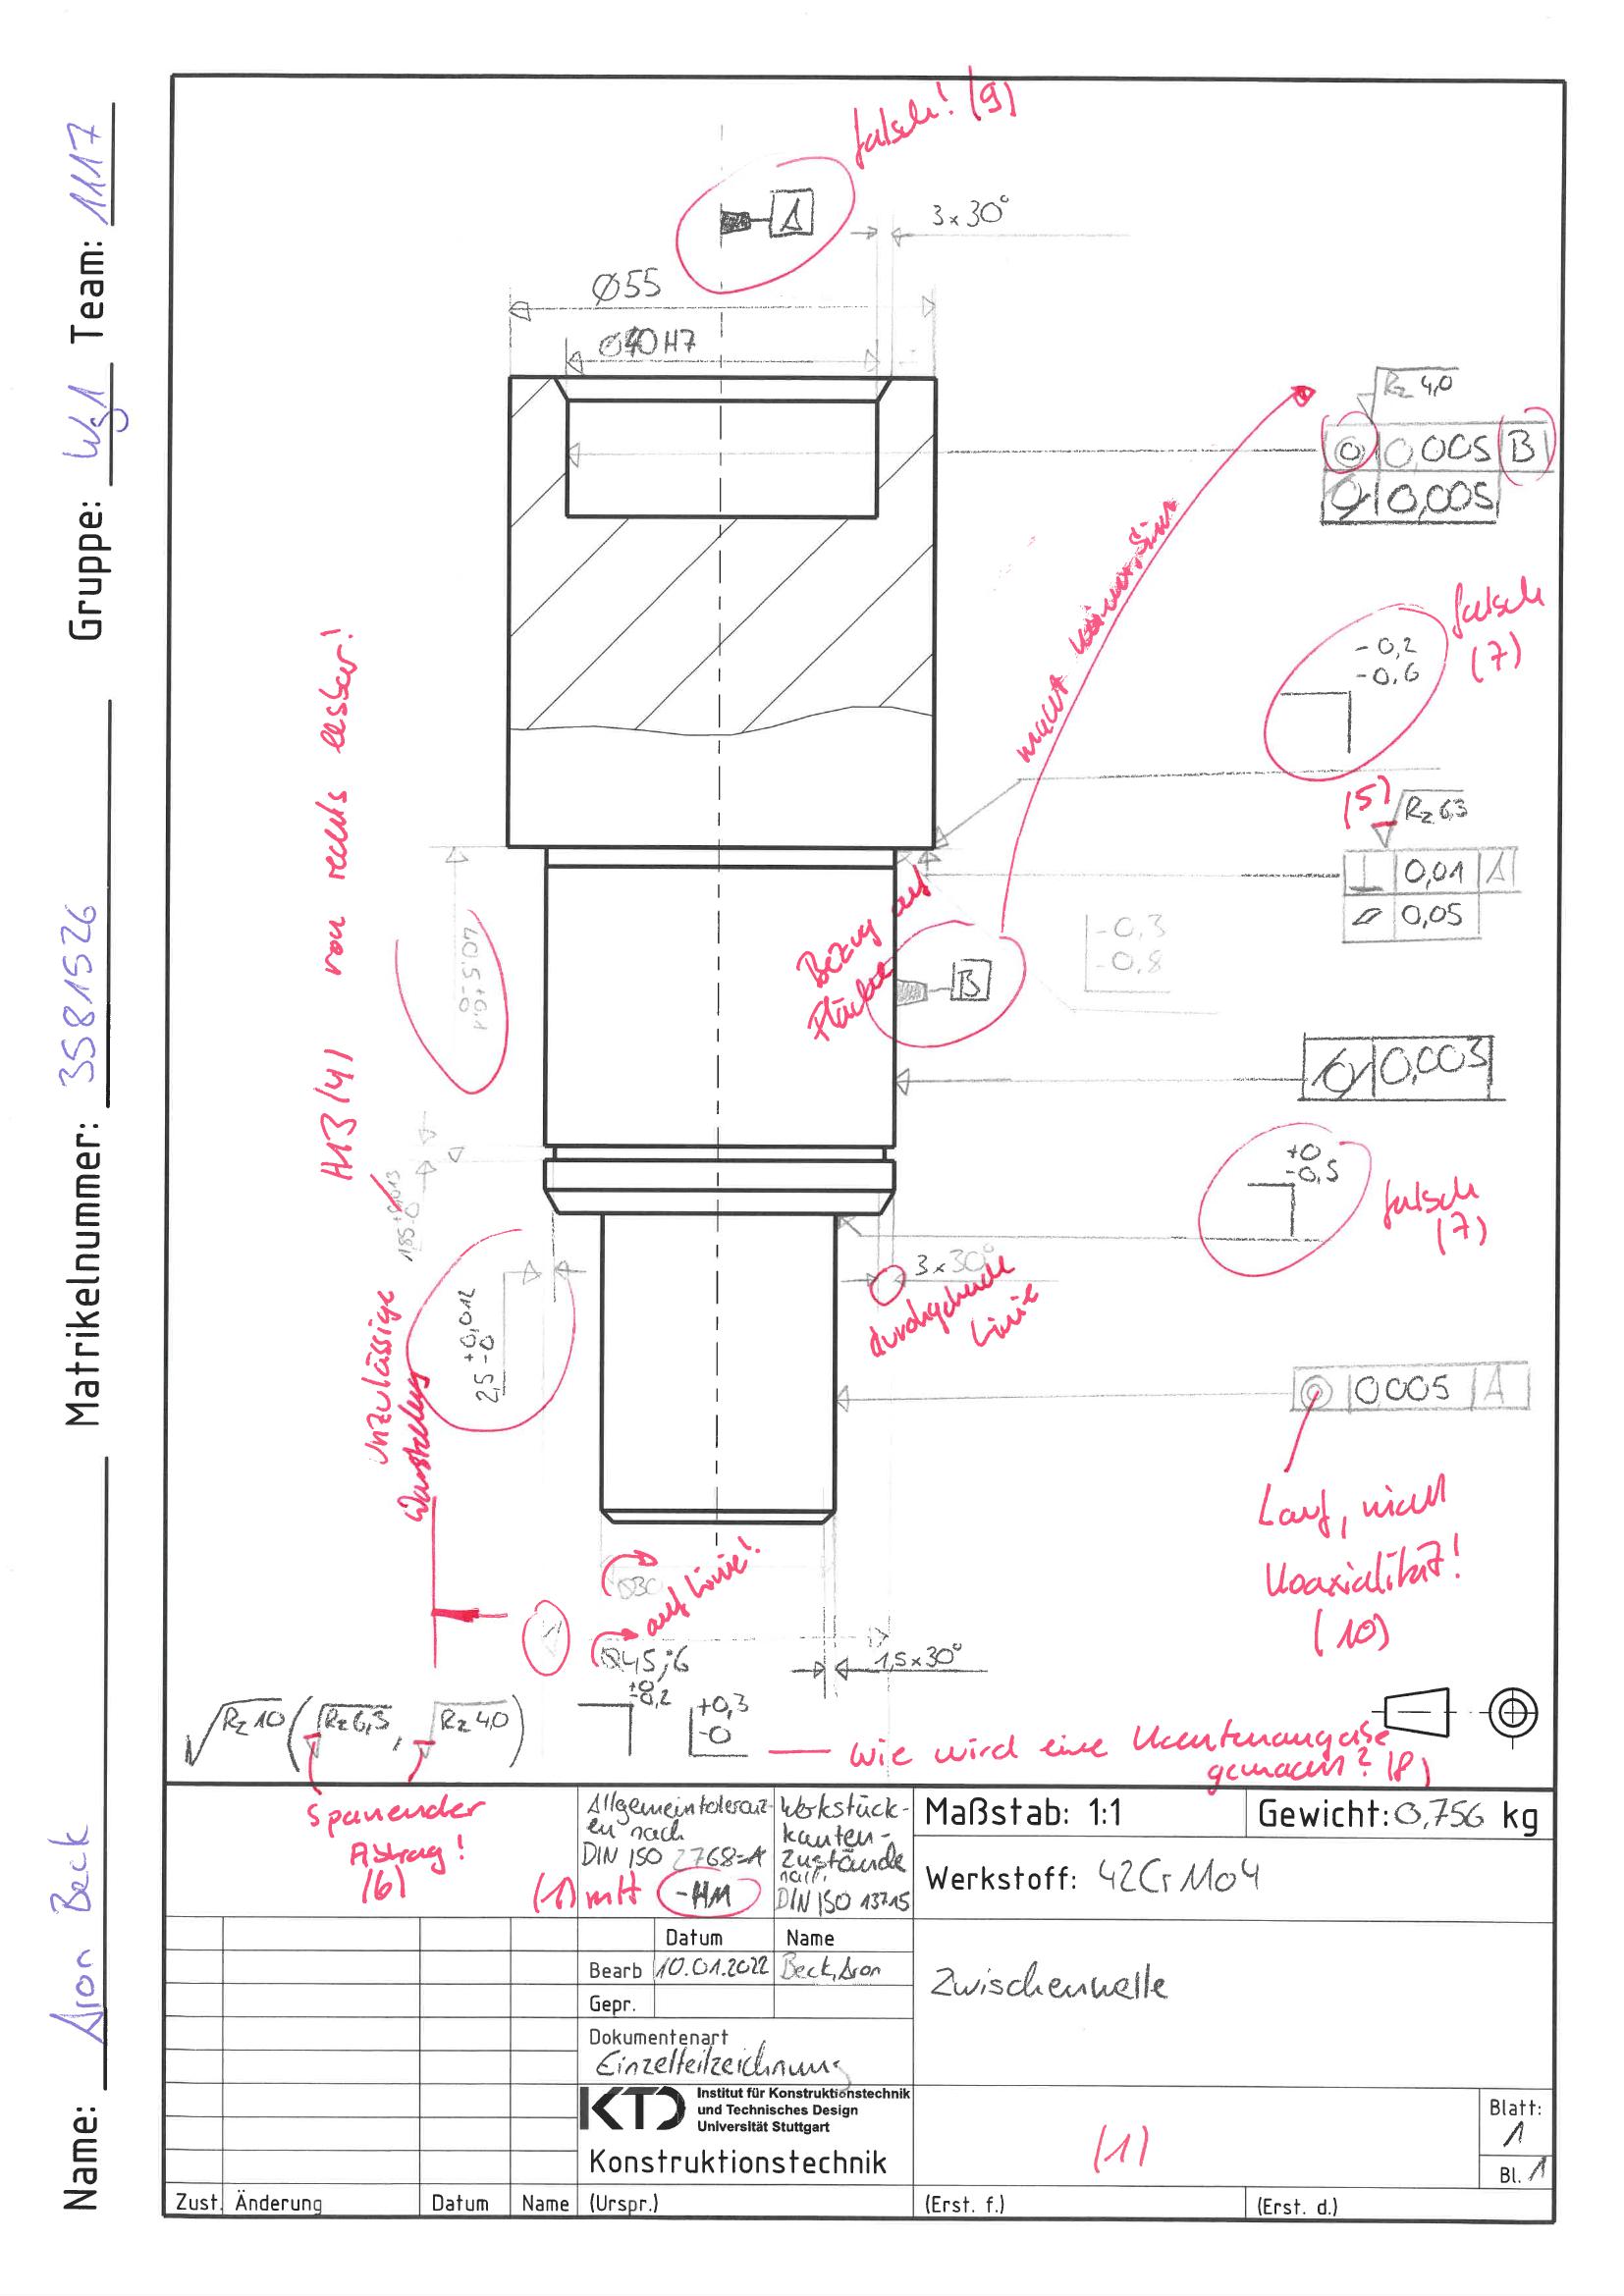 Name: Aron Beck Matrikelnummer: 3581526 Gruppe: Wg1 Team: 1117
falsch! (9)
A
3x30°
Ø55
Ø40H7
Rz 4,0
0,005 B
0,005
macht keinen Sinn
-0,2
-0,6
falsch
(7)
(5)
Rz 6,3
0,01 A
0,05
H13 (4) von rechts lesbar!
40,5 +0,1
-0
Bezug auf
Fläche
B
-0,3
-0,8
0,003
+0
-0,5
falsch
(7)
1,85
-0
3x30°
durchgehende
Linie
2,5 +0,012
-0
unzulässige
Darstellung
0,005 A
Lauf, nicht
Koaxialität!
(10)
Ø30
auf Linie!
Ø45j6
1,5x30°
Rz 10 ( Rz 6,3 , Rz 4,0 )
+0
-0,2
+0,3
-0
wie wird eine Kantenangabe
gemacht? (8)
spanender
Abtrag!
(6)
Allgemeintoleranz-
en nach
DIN ISO 2768-
(1) mit -HM
Werkstück-
kanten-
zustände
nach
DIN ISO 13715
Maßstab: 1:1
Gewicht: 0,756 kg
Werkstoff: 42CrMo4
Datum Name
Bearb 10.01.2022 Beck, Aron
Gepr.
Zwischenwelle
Dokumentenart
Einzelteilzeichnung
KTD
Institut für Konstruktionstechnik
und Technisches Design
Universität Stuttgart
Konstruktionstechnik
(1)
Blatt:
1
Bl. 1
Zust. Änderung Datum Name (Urspr.) (Erst. f.) (Erst. d.)